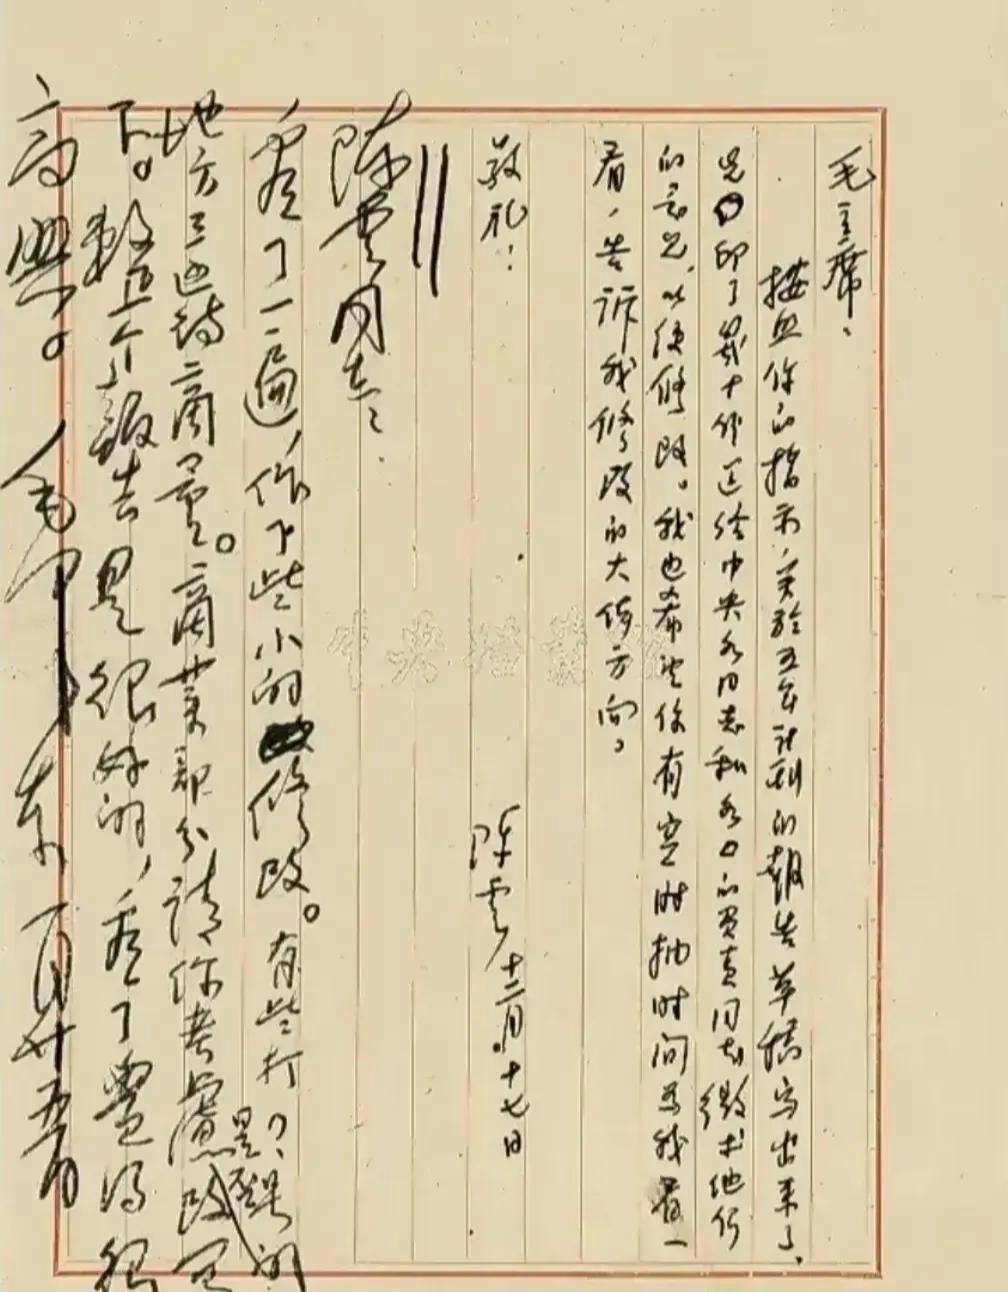 毛主席:
按照你的指示,关于五年计划的报告草稿写出来了。
先印了几十份送给中央各同志和各口的负责同志徵求他们
的意见,以便修改。我也希望你有空时抽时间为我看一
看,告诉我修改的大体方向。
敬礼!
陈云 十二月十七日
陈云同志:
看了一遍,作了些小的修改。有些打?号的
地方是还待商量。商业部分请你考虑是否改写
一下。整个报告是很好的,看了觉得很
高兴。毛泽东 一月廿五日
中央档案馆